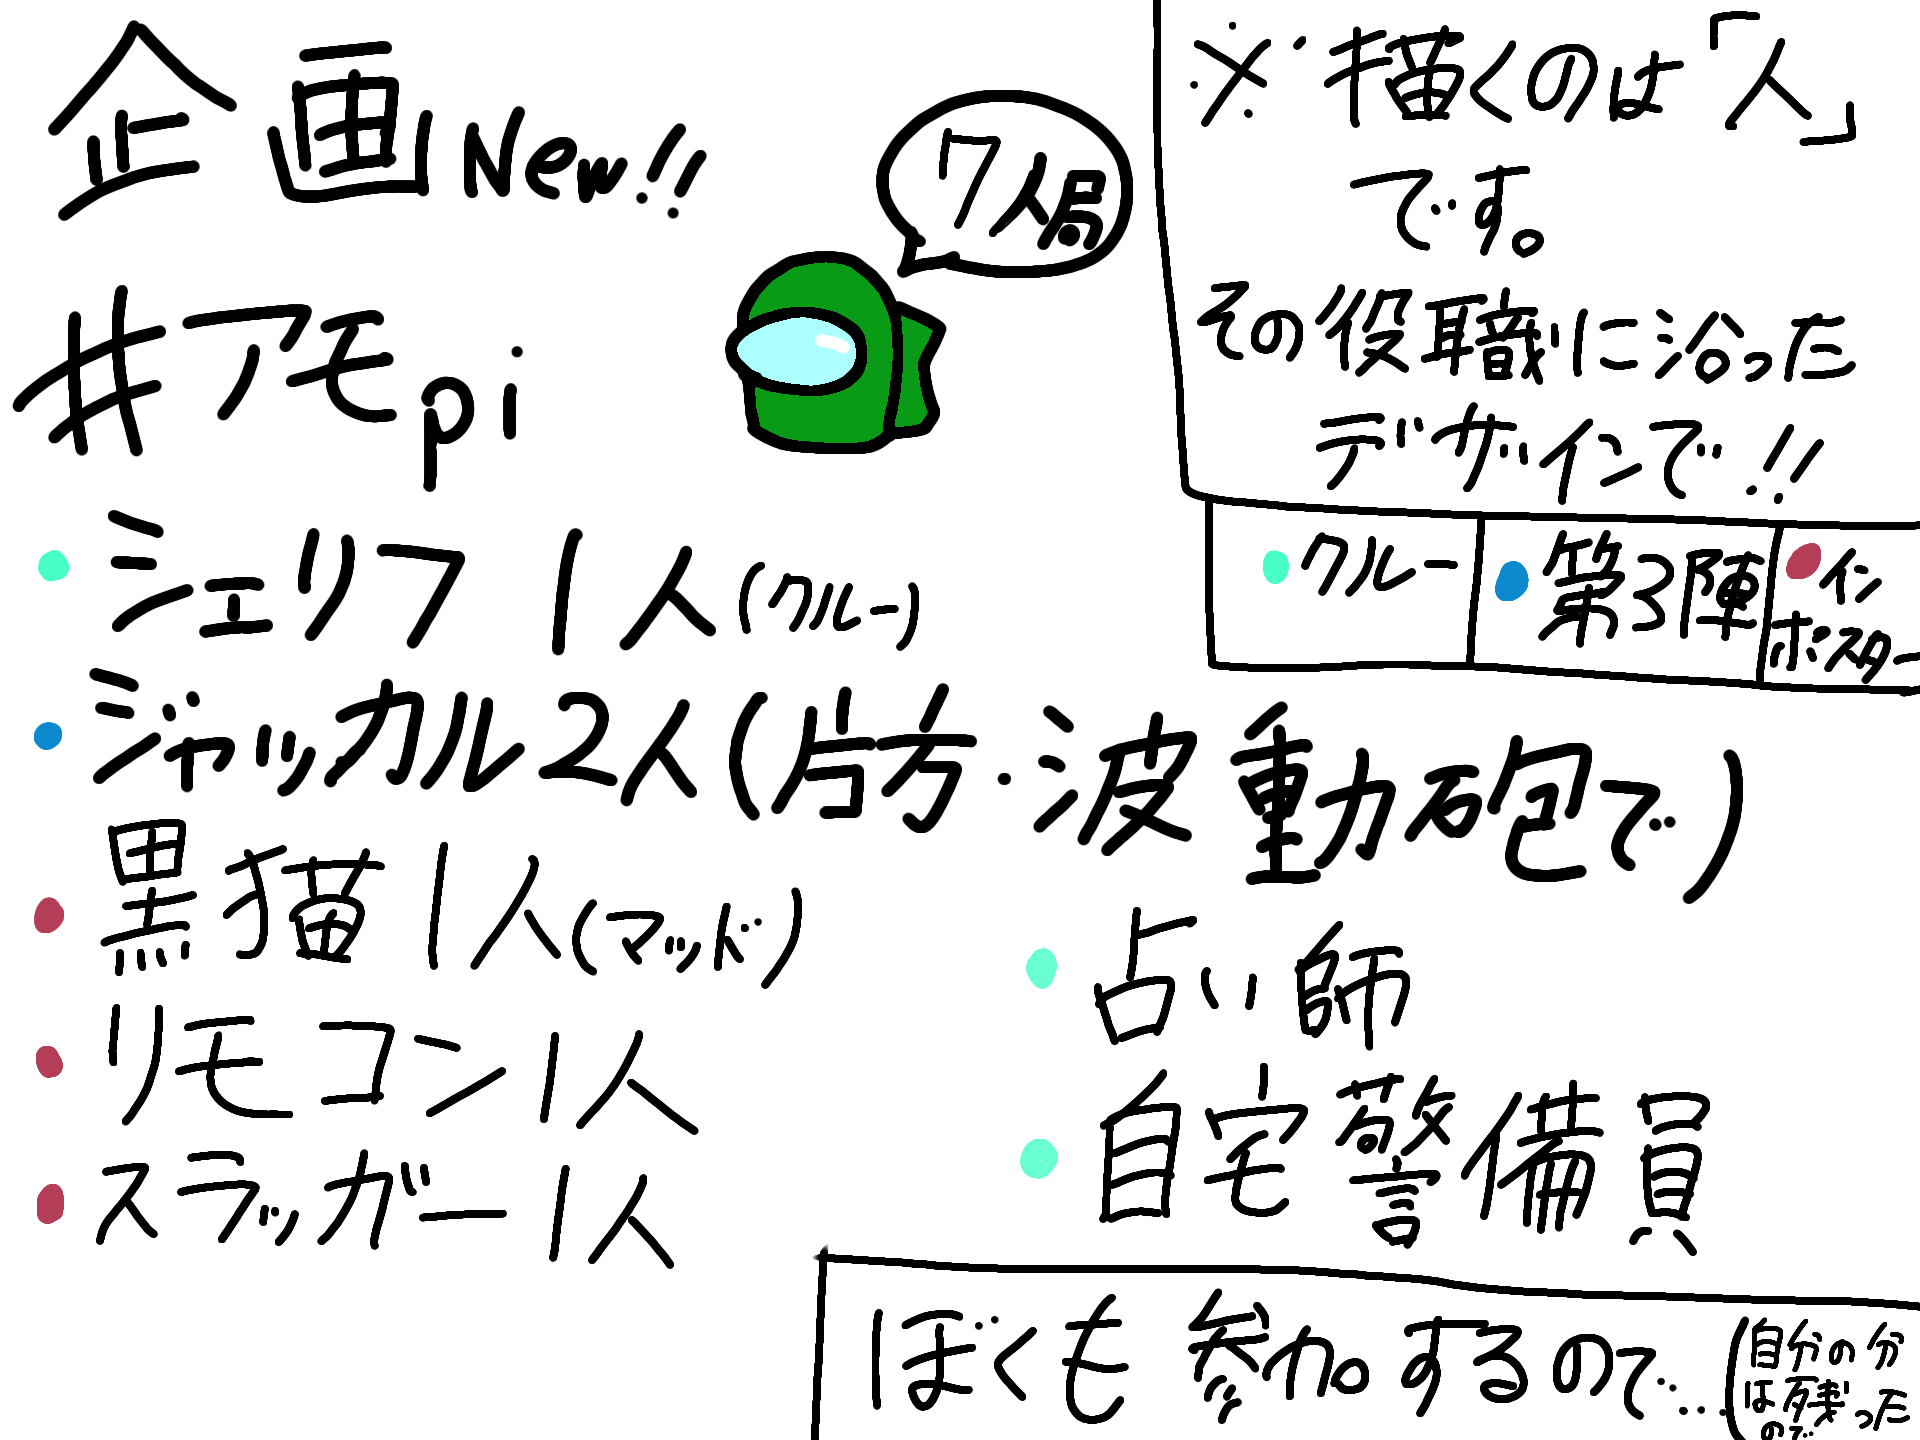 企画New!!
7人局
#アモpi
※描くのは「人」
です。
その役職に沿った
デザインで!!
クルー
第3陣
イン
ポスター
シェリフ 1人(クルー)
ジャッカル2人(片方・波動砲で)
黒猫1人(マッド)
リモコン1人
スラッガー1人
占い師
自宅警備員
ぼくも参加するので...
(自分の分
は残った
ので